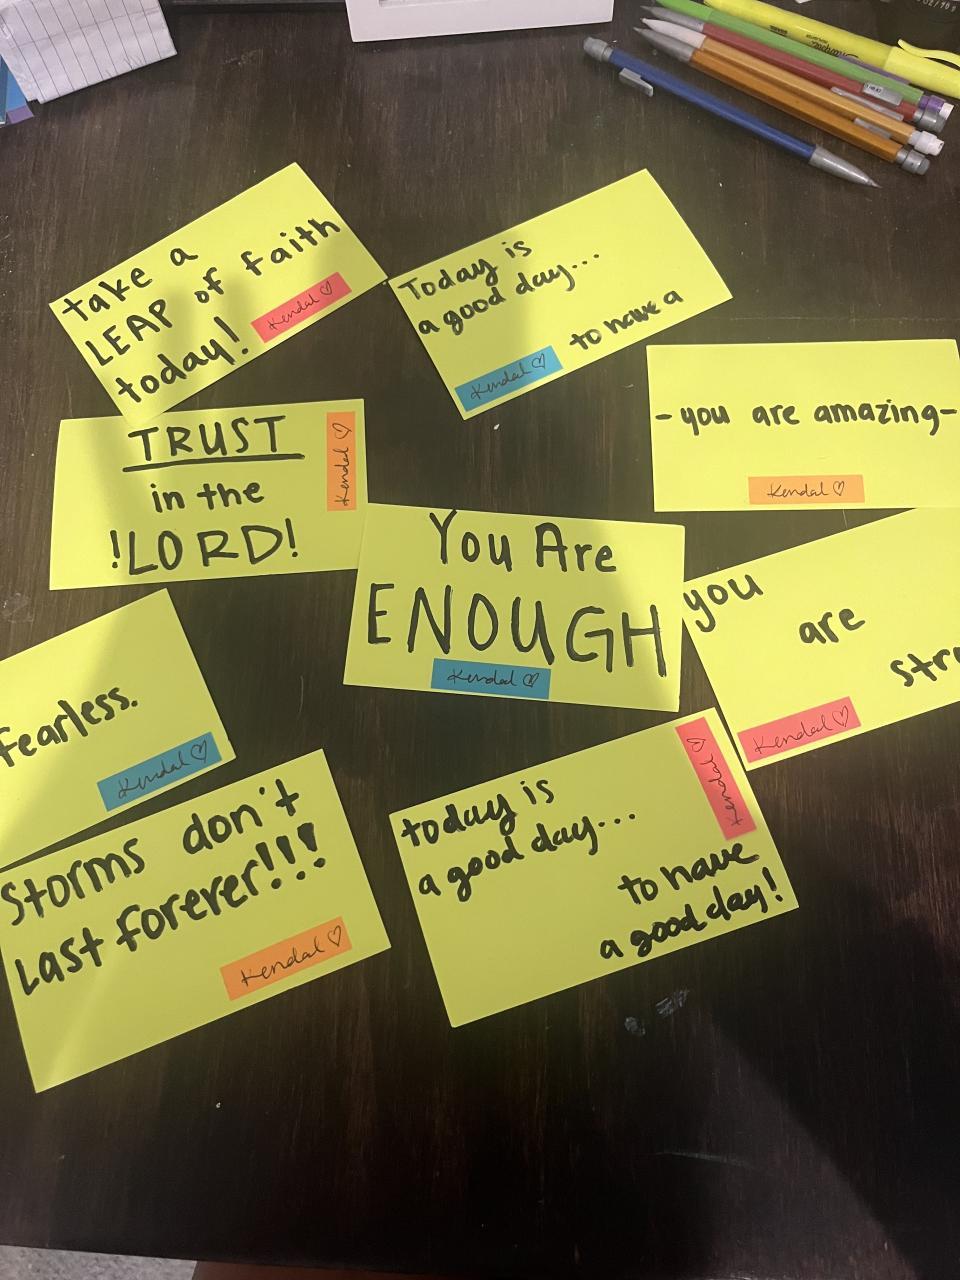 take a
LEAP of faith
today!
Kendal ♡
Today is
a good day...
to have a
Kendal ♡
-you are amazing-
Kendal ♡
TRUST
in the
!LORD!
Kendal ♡
You Are
ENOUGH
Kendal ♡
you
are
stro
Kendal ♡
fearless.
Kendal ♡
Storms don't
Last forever!!!
Kendal ♡
today is
a good day...
to have
a good day!
Kendal ♡